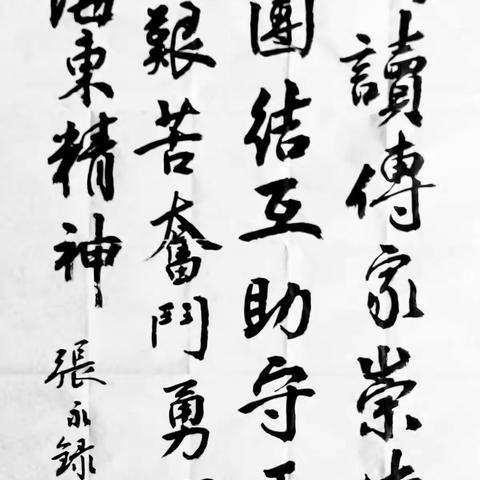 讀傳家崇
團結互助守
艱苦奮鬥勇
海東精神
張永録